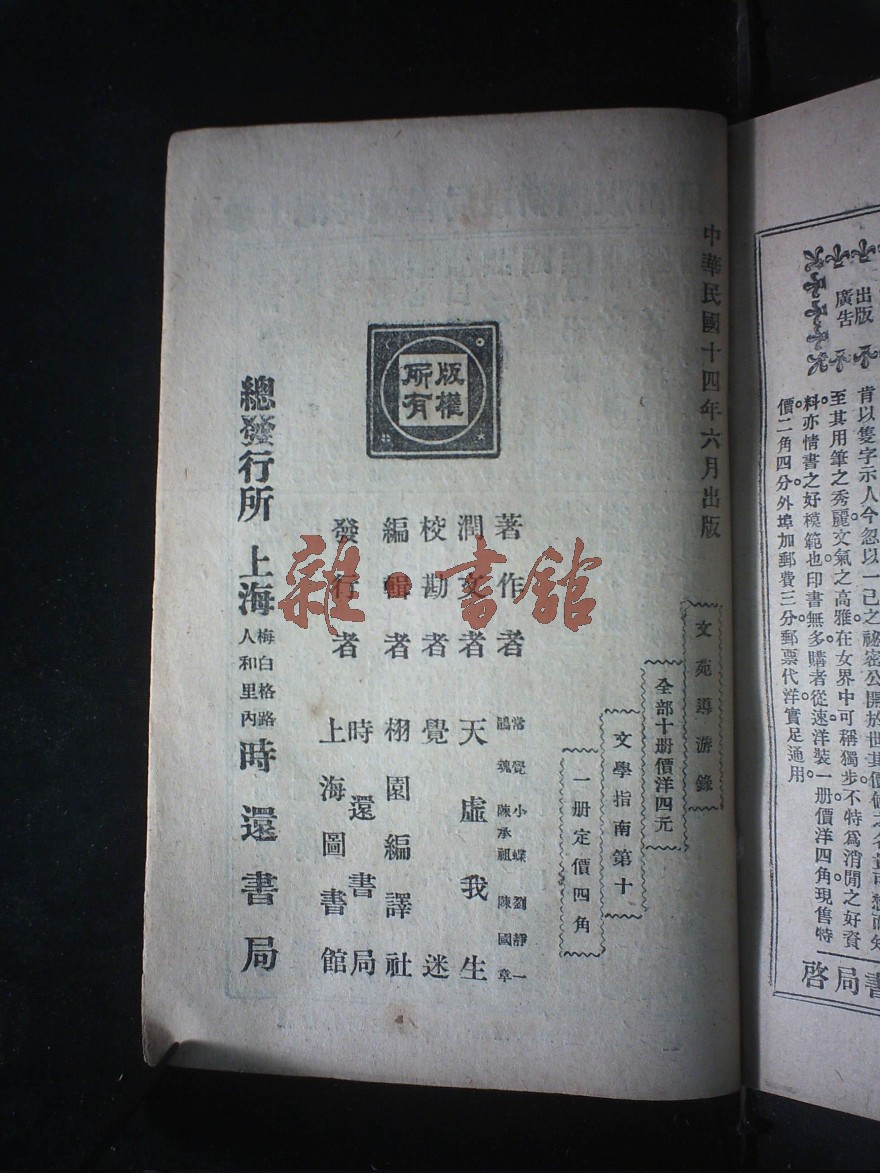 出版
廣告
肯以隻字示人今忽以一己之祕密公開於世其價値之名貴可想而知
至其用筆之秀麗文氣之高雅在女界中可稱獨步不特爲消閒之好資
料亦情書之好模範也印書無多購者從速洋裝一册價洋四角現售特
價二角四分外埠加郵費三分郵票代洋實足通用
書局啓
中華民國十四年六月出版
文苑導游錄
全部十册價洋四元
文學指南第十
一册定價四角
版權
所有
著作者 常覺 小蝶 劉靜一
陳承祖 陳國章
潤文者 天虛我生
校勘者 覺迷
編輯者 栩園編譯社
發行者 時還書局
上海圖書館
總發行所 上海 梅白格路
人和里內 時還書局
雜·書館